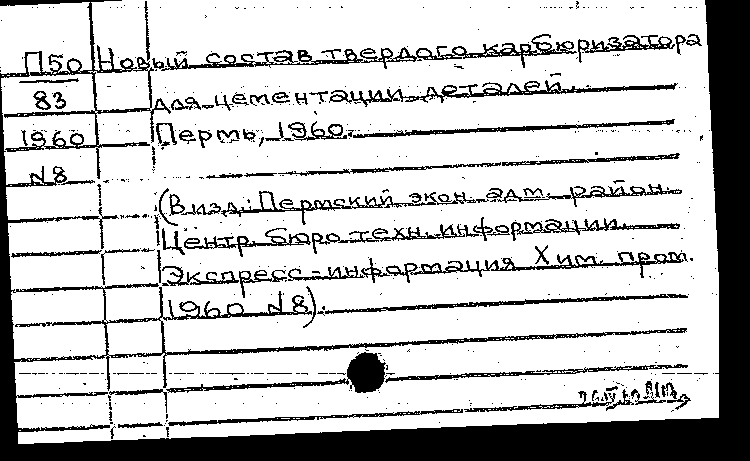 П50 Новый состав твердого карбюризатора
83 для цементации деталей.
1960 Пермь, 1960.
№8
(В изд.: Пермский экон. адм. район.
Центр. бюро техн. информации.
Экспресс-информация Хим. пром.
1960 №8).